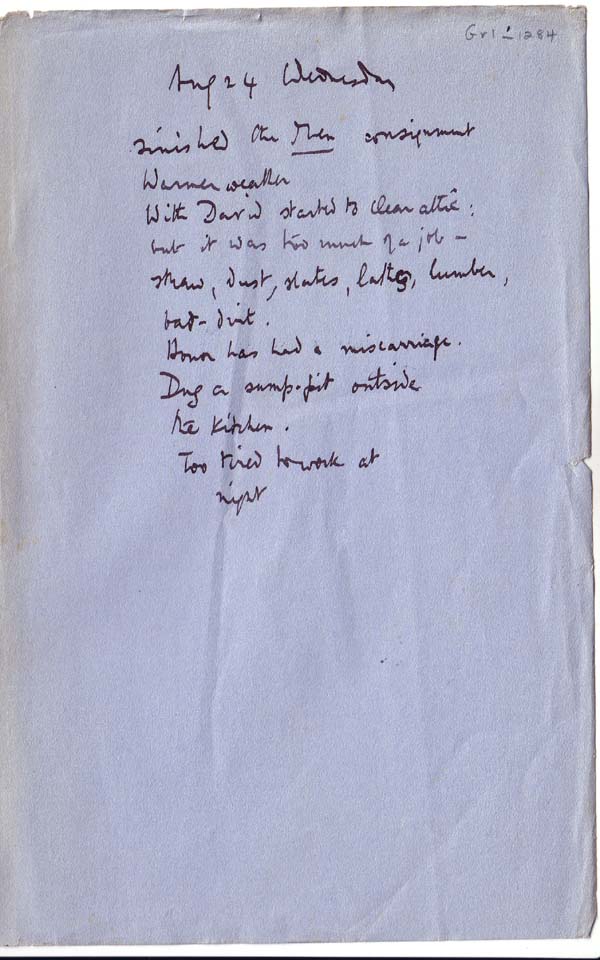 Gr1-1284
Aug 24 Wednesday
Finished the Men consignment
Warmer weather
With David started to clean attic:
but it was too much of a job –
straw, dust, slates, laths, lumber,
bad-dirt.
Honor has had a miscarriage.
Dug a sump-pit outside
the kitchen.
Too tired to work at
night